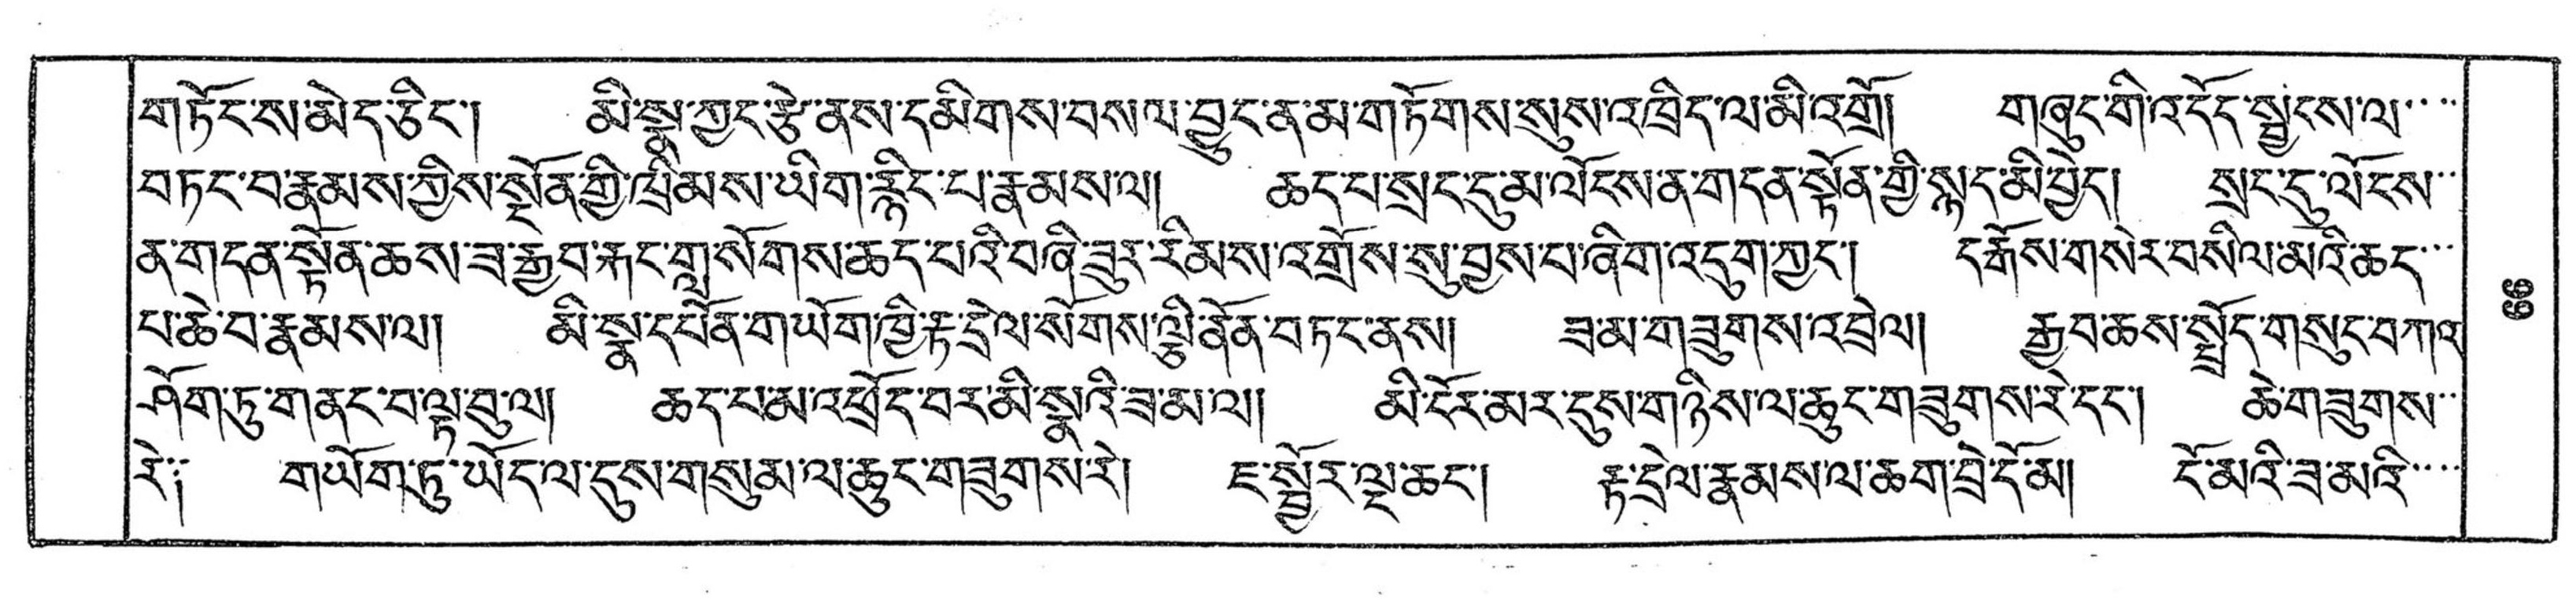 གཏོང་ས་མེད་ཅིང་། མི་སྣ་ཀྱང་རྩེ་ནས་དམིགས་བསལ་བྱུང་ན་མ་གཏོགས་སུས་འཁྲིད་ལ་མི་འགྲོ། གཞུང་གི་འདོད་སྦྱངས་ལ་
བཏང་བ་རྣམས་ཀྱིས་སྔོན་གྱི་ཁྲིམས་ཡིག་རྙིང་པ་རྣམས་ལ། ཆད་པ་སྲང་དུ་མ་ལོངས་ན་གདན་སྟོན་གྱི་སྐད་མི་བྱེད། སྲང་དུ་ལོངས་
ན་གདན་སྟོན་ཆས་ཟ་རྒྱབ་རྐང་གླ་སོགས་ཆད་པའི་བཞི་ཟུར་རིམས་འགྲོས་སུ་བྱས་པ་ཞིག་འདུག་ཀྱང་། དགོས་གསེར་བསིལ་མའི་ཆད་
པ་ཆེ་བ་རྣམས་ལ། མི་སྣ་དཔོན་གཡོག་ཁྱི་རྟ་དྲེལ་སོགས་ལྕི་ནོན་བཏང་ནས། ཟ་མ་གཟུགས་འབྲེལ། རྒྱབ་ཆས་སྤྲོད་གསུང་བཀའ་
ཤོག་ཏུ་གནང་བ་ལྟ་བུ་ལ། ཆད་པ་མ་འཕྲོད་བར་མི་སྣའི་ཟ་མ་ལ། མི་ངོར་མར་དུས་གཉིས་ལ་ཆུང་གཟུགས་རེ་དང་། ཆེ་གཟུགས་
རེ༔ གཡོག་ཏུ་ཡོད་ལ་དུས་གསུམ་ལ་ཆུང་གཟུགས་རེ། ཇ་སྦྱོར་ལྔ་ཆང་། རྟ་དྲེལ་རྣམས་ལ་ཆག་བྲེ་དོ་མ། ངོ་མའི་ཟ་མའི་